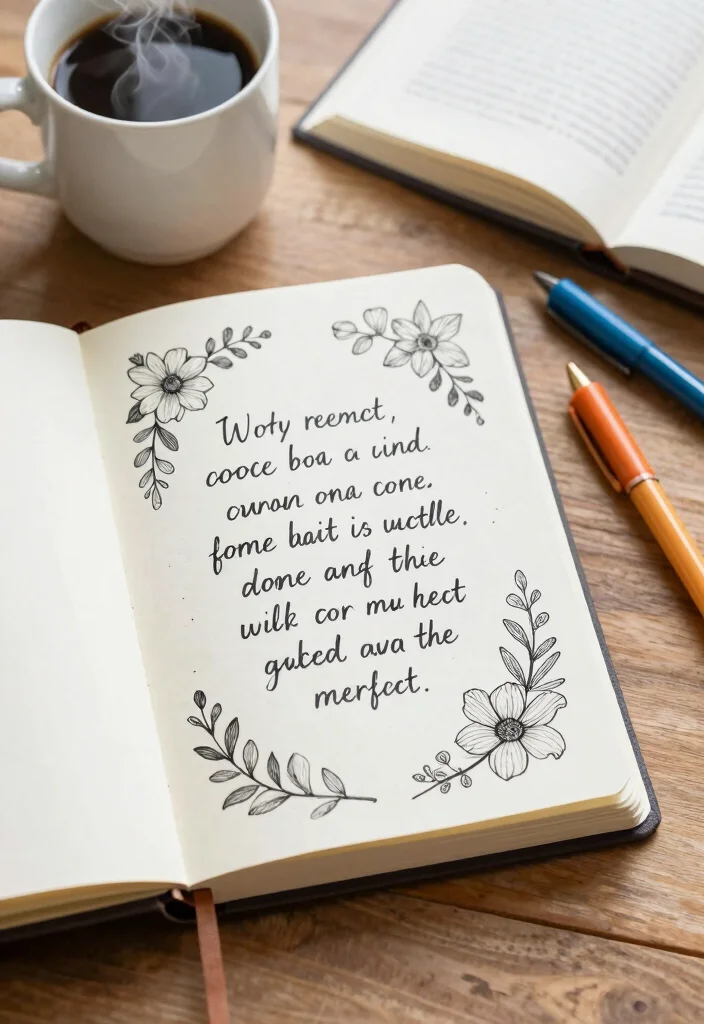 Woty reemct,
cooce boa a cind.
ounon ona cone.
fome bait is uctlle.
done anf thie
wilk cor mu hect
guked ava the
merfect.